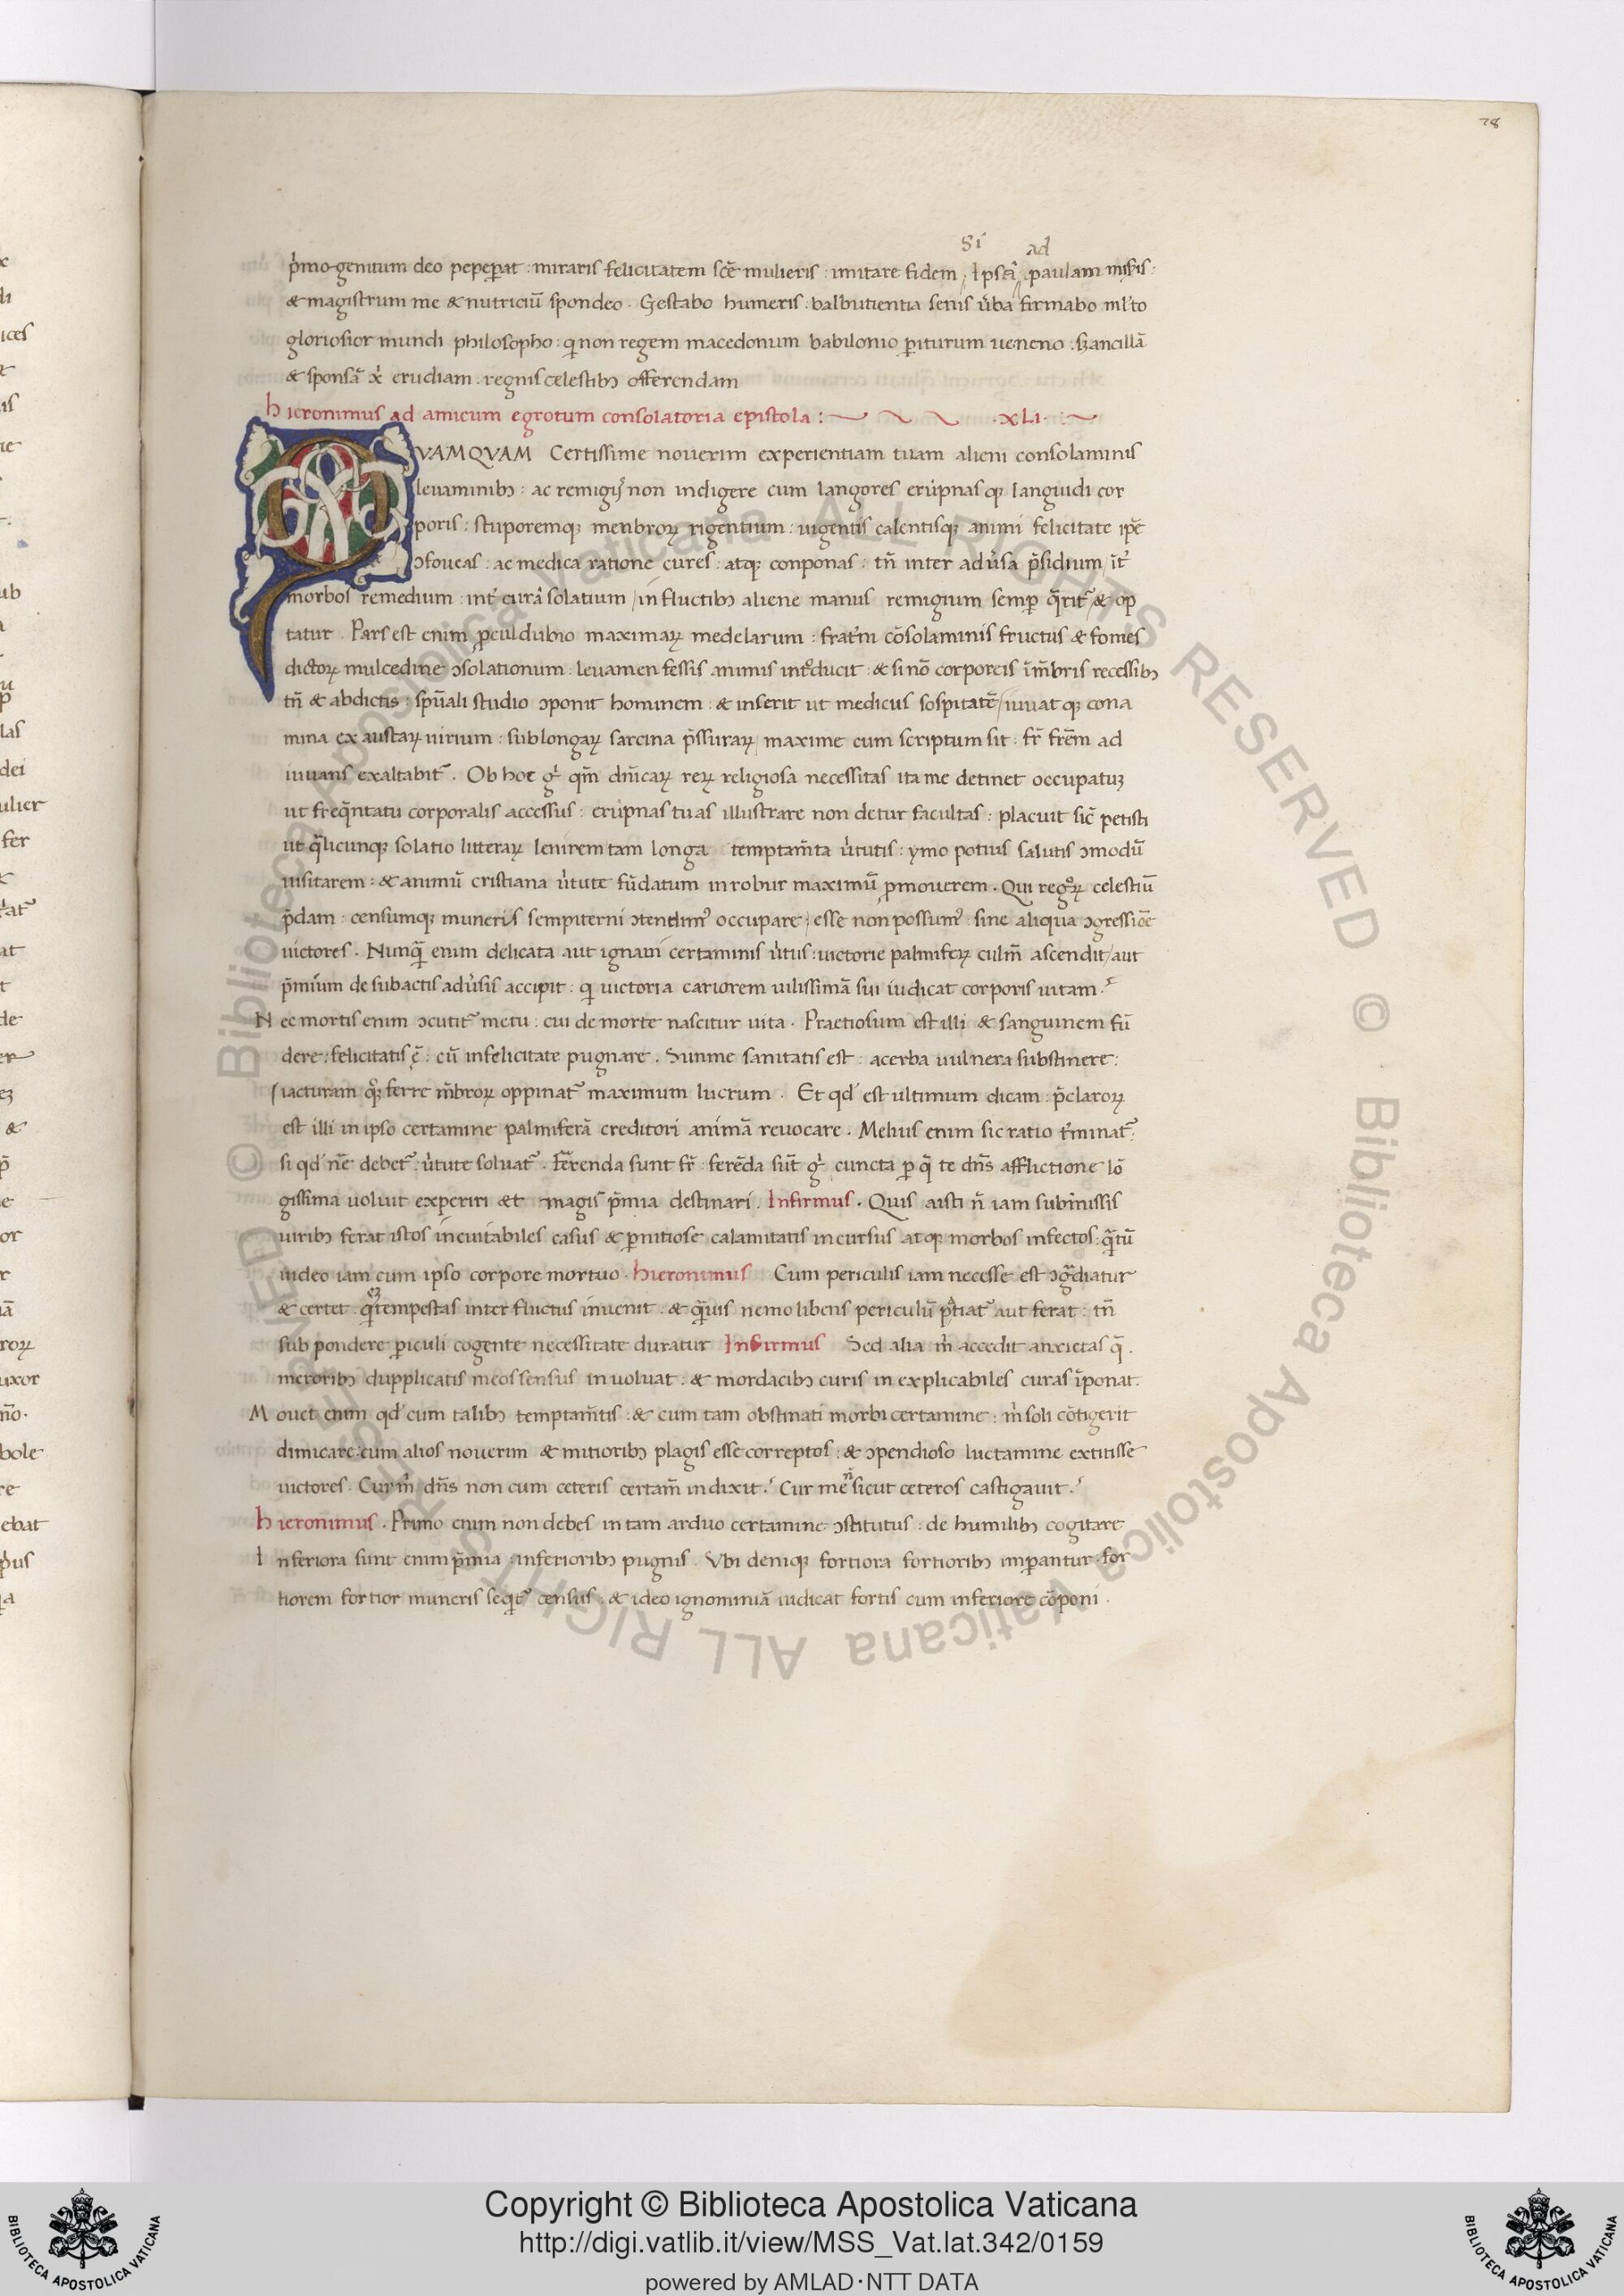 78
Si ad
p̾mo-genitum deo pepeꝑat : miraris felicitatem sc̃e mulieris : imitare fidem , Ipsã paulam misis :
& magistrum me & nutriciũ spondeo . Gestabo humeris : balbutientia senis ũba firmabo ml̾to
gloriosior mundi philosopho : qi non regem macedonum babilonio ꝑiturum ueneno : sz ancillã
& sponsã xp̃i erudiam . regnis celestibꝫ offerendam
hieronimus ad amicum egrotum consolatoria epistola : .XLI.
QVAMQVAM Certissime nouerim experientiam tuam alieni consolaminis
leuaminibꝫ : ac remigij non indigere cum langores erũpnasqꝫ languidi cor
poris : stuporemqꝫ menbroꝝ rigentium : uigentis calentisqꝫ animi felicitate ip̃e
ↄfoueas : ac medica ratione cures : atqꝫ conponas : tñ inter adũsa p̃sidium / it̾
morbos remedium : int̾ curã solatium / in fluctibꝫ aliene manus remigium semꝑ q̃rit̾ / & op
tatur . Pars est enim ꝓculdubio maximaꝝ medelarum : frat̾m cõsolaminis fructus & fomes
dictoꝝ mulcedine ↄsolationum : leuamen fessis animis int̾ducit : & si nõ corporeis ĩm̃bris recessibꝫ
tñ & abdictis : spũali studio ↄponit hominem : & inserit ut medicus sospitatẽ / iuuat qꝫ cona
mina exaustaꝝ uirium : sub longaꝝ sarcina p̃ssuraꝝ / maxime cum scriptum sit : fr̃ frẽm ad
iuuans exaltabit̾ . Ob hoc g̾ qm̃ dñicaꝝ reꝝ religiosa necessitas ita me detinet occupatuꝫ
ut freq̃ntatu corporalis accessus : erũpnas tuas illustrare non detur facultas : placuit sic̃ petisti
ut q̃licunqꝫ solatio litteraꝝ lenirem tam longa temptam̃ta ũtutis : ymo potius salutis ↄmodũ
uisitarem : & animũ cristiana ũtute fũdatum in robur maximũ ꝓmouerem . Qui regnoꝝ celestiũ
p̃dam : censumqꝫ muneris sempiterni ↄtendim̾ occupare ; esse non possum̾ : sine aliqua ↄgressiõe
uictores . Nunq̃ enim delicata aut ignaui certaminis ũtus : uictorie palmiferꝝ culm̃ ascendit / aut
p̃mium de subactis adũsis accipit : qi uictoria cariorem uilissimã sui iudicat corporis uitam .
Nec mortis enim ↄcutit̾ metu : cui de morte nascitur uita . Praetiosum est illi & sanguinem fũ
dere : felicitatis ẽ : cũ infelicitate pugnare . Summe sanitatis est : acerba uulnera substinere :
iacturam qꝫ ferre m̃broꝝ oppinat̾ maximum lucrum . Et qd' est ultimum dicam : p̃claroꝝ
est illi in ipso certamine palmiferã creditori animã reuocare . Melius enim sic ratio t̾minat̾ :
si qd' nẽ debet̾ : ũtute soluat̾ . Ferenda sunt fr̃ : ferẽda sũt g̾ cuncta ꝑ q̃ te dñs afflictione lõ
gissima uoluit experiri et magis p̃mia destinari . Infirmus . Quis aisti ñ iam submissis
uiribꝫ ferat istos ineuitabiles casus & ꝑnitiose calamitatis incursus atqꝫ morbos infectos : q̃tũ
uideo iam cum ipso corpore mortuo . hieronimus Cum periculis iam necesse est ↄg̃diatur
& certet . qꝫ tempestas inter fluctus inuenit : & q̃uis nemo libens periculũ p̃tiat̾ aut ferat : tñ
sub pondere ꝑiculi cogente necessitate duratur Infirmus Sed alia m̾ accedit anxietas q̃ .
meroribꝫ dupplicatis meos sensus inuoluat : & mordacibꝫ curis in explicabiles curas ĩponat .
Mouet enim qd' cum talibꝫ temptam̃tis : & cum tam obstinati morbi certamine : m̾ soli cõtigerit
dimicare : cum alios nouerim & mitioribꝫ plagis esse correptos : & ↄpendioso luctamine extitisse
uictores . Cur m̾ dñs non cum ceteris certam̃ indixit . Cur me ñ sicut ceteros castigauit .
hieronimus . Primo enim non debes in tam arduo certamine ↄstitutus : de humilibꝫ cogitare
Inferiora sunt enim p̃mia : inferioribꝫ pugnis . Vbi deniqꝫ fortiora fortioribꝫ imꝑantur : for
tiorem fortior muneris seqt̾ census : & ideo ignominiã iudicat fortis cum inferiore cõponi .
© Biblioteca Apostolica Vaticana ALL RIGHTS RESERVED © Biblioteca Apostolica Vaticana ALL RIGHTS RESERVED
Copyright © Biblioteca Apostolica Vaticana
http://digi.vatlib.it/view/MSS_Vat.lat.342/0159
powered by AMLAD·NTT DATA
BIBLIOTECA APOSTOLICA VATICANA
BIBLIOTECA APOSTOLICA VATICANA